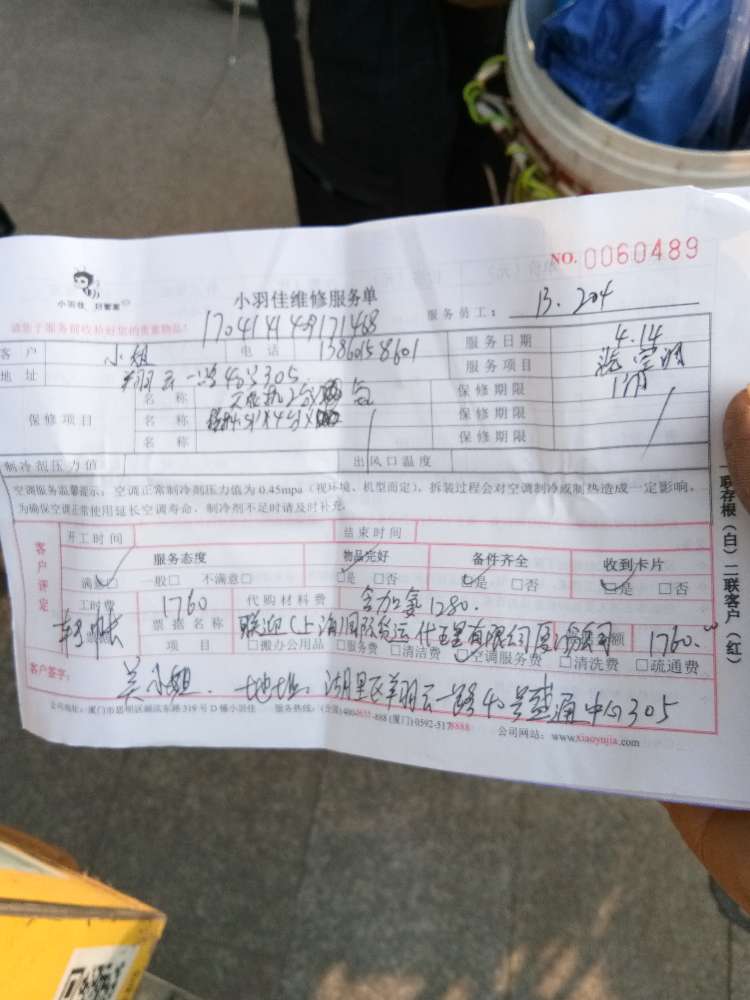 NO. 0060489
小羽佳 日繁案
小羽佳维修服务单
服务劳工： B.204
请您于服务前收拾好您的贵重物品！
170414149171468
客户 小姐 电话 13860158601 服务日期 4.14
地址 翔云一路40号305 服务项目 洗空调
保修项目 名称 保修期限 1月
名称 保修期限
名称 保修期限
制冷剂压力值 出风口温度
空调服务温馨提示：空调正常制冷剂压力值为0.45mpa（视环境、机型而定），拆装过程会对空调制冷或制热造成一定影响，
为确保空调正常使用延长空调寿命，制冷剂不足时请及时补充。
客户评定
开工时间 结束时间
服务态度 物品完好 备件齐全 收到卡片
满意□ 一般□ 不满意□ □是 □否 □是 □否 □是 □否
工时费 1760 代购材料费 含加氨1280.
转帐 票据名称 联迎(上海)国际货运代理有限公司厦门分公司 额 1760.
项目 □搬办公用品 □服务费 □清洁费 □空调服务费 □清洗费 □疏通费
客户签字： 吴小姐. 地址 湖里区翔云一路40号盛通中心305
公司地址：厦门市思明区湖滨东路319号D幢小羽佳 服务热线：(全国)400-8631-888 (厦门)0592-5178888
公司网站：www.xiaoyujia.com
一联存根（白）二联客户（红）